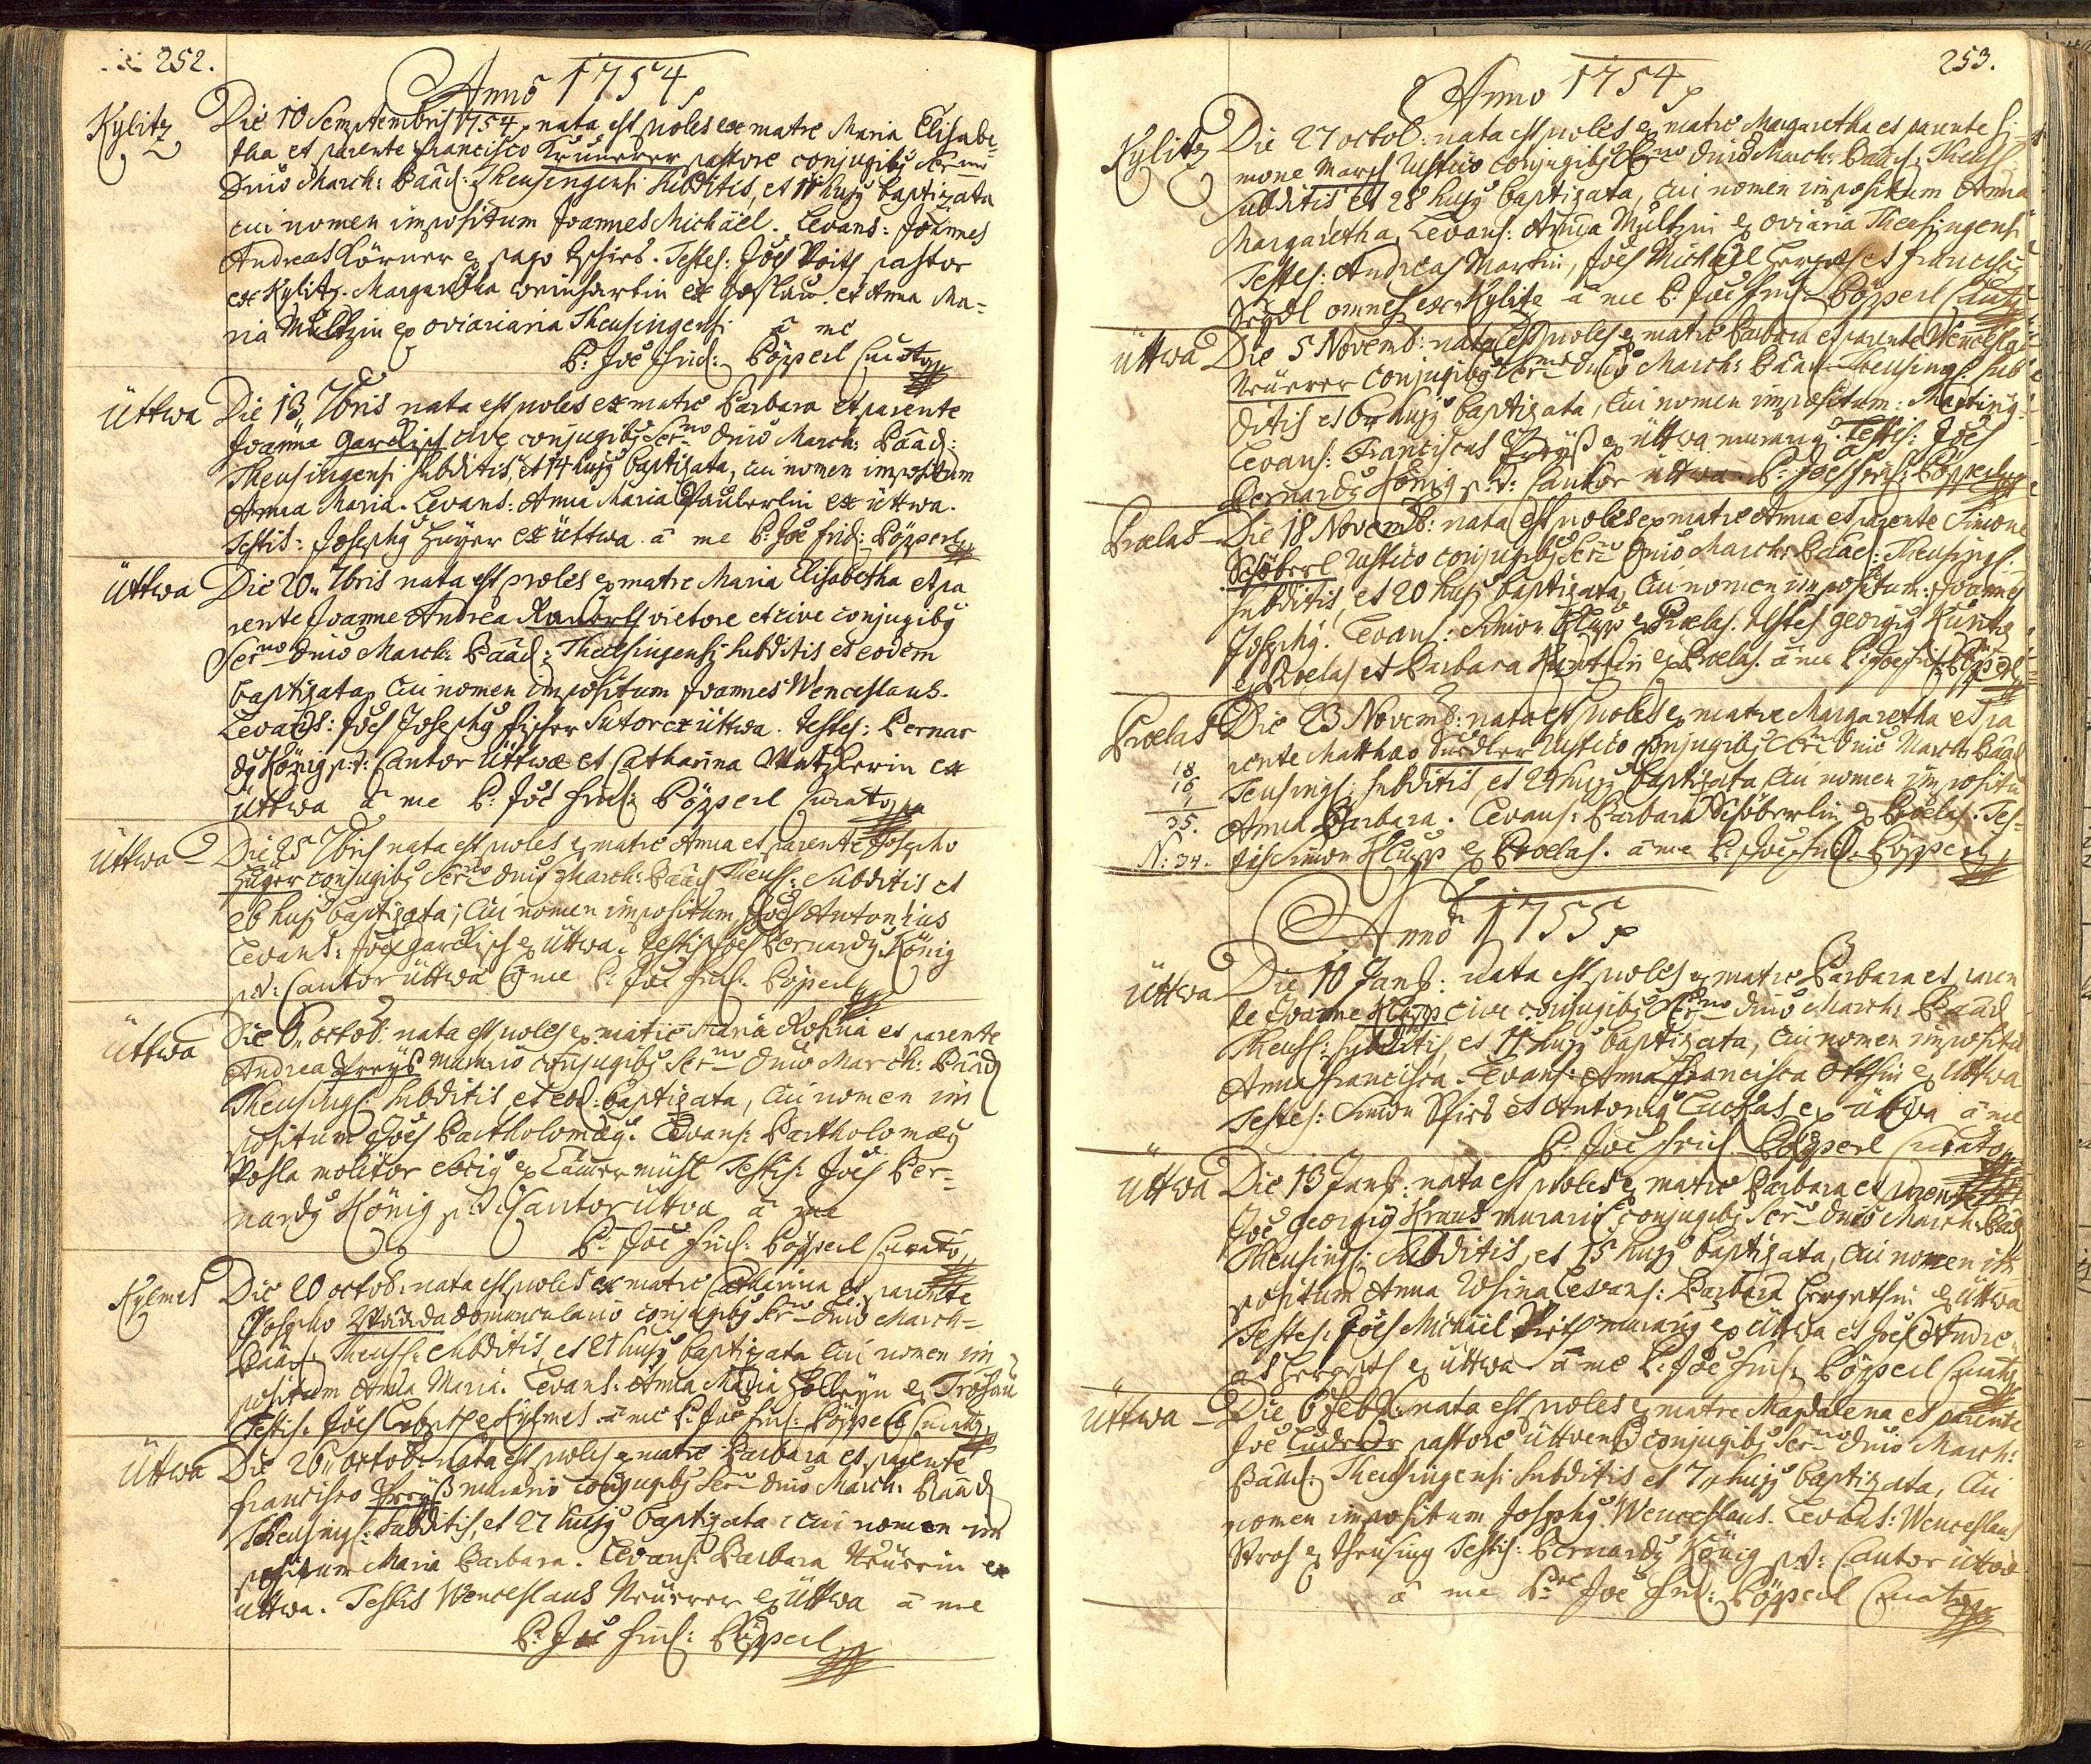 252.
Anno 1754
Kylitz
Die 10 Semptembris 1754 nata est proles ex matre Maria Elisabe-
tha et parente Francisco pastore conjugibg Ser mo
Dnio March: Baad: Theusingensi Subditis, et 11 hujg baptizata
cui nomen impositum Joannes Michäel. Levans: Joannes
Andreas Körner ex pago Testes: Joës Voith pastor
ex Kylitz. Margaretha ex et Anna Ma-
ria Mültzin ex oviariaria Theusingensi â me
P: Joë Frid: Pöpperl Curato
Üttwa
Die 13 7bris nata est proles ex matre Barbara et parente
Joanne Gareisch cive conjugibg Ser mo Dnio March: Baad:
Theusingensi Subditis, et 14 hujg baptizata, cui nomen impositum
Anna Maria. Levans: Anna Maria ex üttwa.
Testis: Josephg Huÿer ex üttwa â me P: Joë Frid: Pöpperl
Üttwa
Die 20 7bris nata est proles ex matre Maria Elisabetha et pa
rente Joanne Andrea vietore et cive conjugibg
Ser mo Dnio March: Baad: Theusingensi Subditis et eodem
baptizata, cui nomen impositum Joannes Wenceslaus.
Levans: Joës Josephg Fischer Sutor ex üttwa. Testes: Bernar
dg König p:t: Cantor Üttwæ et Catharina ex
üttwa â me P: Joë Frid: Pöpperl Curato
Üttwa
Die 25 7bris nata est proles ex matre Anna et parente Josepho
Huÿer conjugibg Ser mo Dnio March: Baad Theus: Subditis et
26 hujg baptizata; cui nomen impositum Joës Antonius
Levans: Joës Gareisch ex üttwa. Testis Joës Bernardg König
p:t: Cantor üttwa â me P: Joë Frid: Pöpperl
Üttwa
Die 6 octob: nata est proles ex matre Maria Rosina et parente
Andrea Preÿs murario conjugibg Ser mo Dnio March: Baad
Theusing: Subditis et eod: baptizata, cui nomen im
positum Joës Bartholomæg. Levans: Bartholomæg
molitor ex Testis: Joës Ber-
nardg König p:t: Cantor üttva â me
P: Joë Frid: Pöpperl Curato
Kylmes
Die 20 octob: nata est proles ex matre Catharina et parente
Josepho domunculario conjugibg Ser mo Dnio March-
Baad: Theuss: Subditis, et 21 hujg baptizata cui nomen im
positum Anna Maria. Levans: Anna Maria ex
Testis: Joës ex Kylmes â me P: Joë Frid: Pöpperl Curato
Üttwa
Die 26 octob: nata est proles ex matre Barbara et parente
Francisco Preÿß murario conjugibg Ser mo Dnio March: Baad
Theusing: Subditis, et 27 hujg baptizata cui nomen im
positum Maria Barbara. Levans: Barbara Neürerin ex
üttwa. Testis Wenceslaus Neürerer ex üttwa â me
P: Joë Frid: Pöpperl
253.
Anno 1754
Kylitz
Die 27 octob: nata est proles ex matre Margaretha et parente Si-
mone rustico conjugibg Ser mo Dnio March: Baad: Theus:
Subditis et 28 hujg baptizata, cui nomen impositum Anna
Margaretha, Levans: Anna Mültzin ex oviaria Theusingensi
Testes: Andreas Martin, Joës Michäel Hergeth et Franciscg
omnes ex Kylitz â me P: Joë Frid: Pöpperl Curato
Üttwa
Die 5 Novemb: nata est proles ex matre Barbara et parente Wenceslao
Neürerer conjugibg Ser mo Dnio March: Baad Theusing: Sub
ditis et 6 hujg baptizata, cui nomen impositum: Marting.
Levans: Franciscus Preÿß ex üttwa murarig. Testis: Joës
Bernardg König p:t: Cantor üttwa P: Joë Frid: Pöpperl
Proelas
Die 18 Novemb: nata est proles ex matre Anna et parente Simone
Schöberl rustico conjugibg Ser mo Dnio March: Baad: Theusing:
Subditis, et 20 hujg baptizata, cui nomen impositum: Joannes
Josephg. Levans: Simon Klupp ex Proelas. Testes Georgig Küntz
ex Proelas et Barbara ex Proelas. â me P: Joë Frid: Pöpperl
Proelas
Die 23 Novemb: nata est proles ex matre Margaretha et pa
rente Matthæo rustico conjugibg Ser mo Dnio March: Baad
Teusing: Subditis, et 24 hujg baptizata cui nomen impositu
Anna Barbara. Levans: Barbara Schöberlin ex Proelas. Tes-
tis Simon Klupp ex Proelas. â me P: Joë Frid: Pöpperl
18
16
1
35.
N: 34.
Anno 1755
Üttwa
Die 10 Janu: nata est proles ex matre Barbara et paren
te Joanne cive conjugibg Ser mo Dnio March: Baad
Theuss: Subditis, et 11 hujg baptizata, cui nomen impositu
Anna Francisca. Levans: Anna Francisca ex üttwa
Testes: Simon et Antonig ex üttwa â me
P: Joë Frid: Pöpperl Curato
Üttwa
Die 13 Janu: nata est proles ex matre Barbara et parente
Joë Georgio Kraus murario conjugibg Ser mo Dnio March: Baad
Theusing: Subditis, et 15 hujg baptizata, cui nomen im
positum Anna Rosina Levans: Barbara Hergethin ex üttwa
Testes: Joës Michäel murarig ex üttwa et Joës Andre-
as Hergeth ex üttwa â me P: Joë Frid: Pöpperl Curato
Üttwa
Die 6 Feb: nata est proles ex matre Magdalena et parente
Joë pastore üttvensi conjugibg Ser mo Dnio March:
Baad: Theusingensi Subditis et 7 hujg baptizata, cui
nomen impositum Josephg Wenceslaus. Levans: Wenceslaus
ex Theusing Testis: Bernardg König p:t: Cantor üttwæ
â me P: Joë Frid: Pöpperl Curato